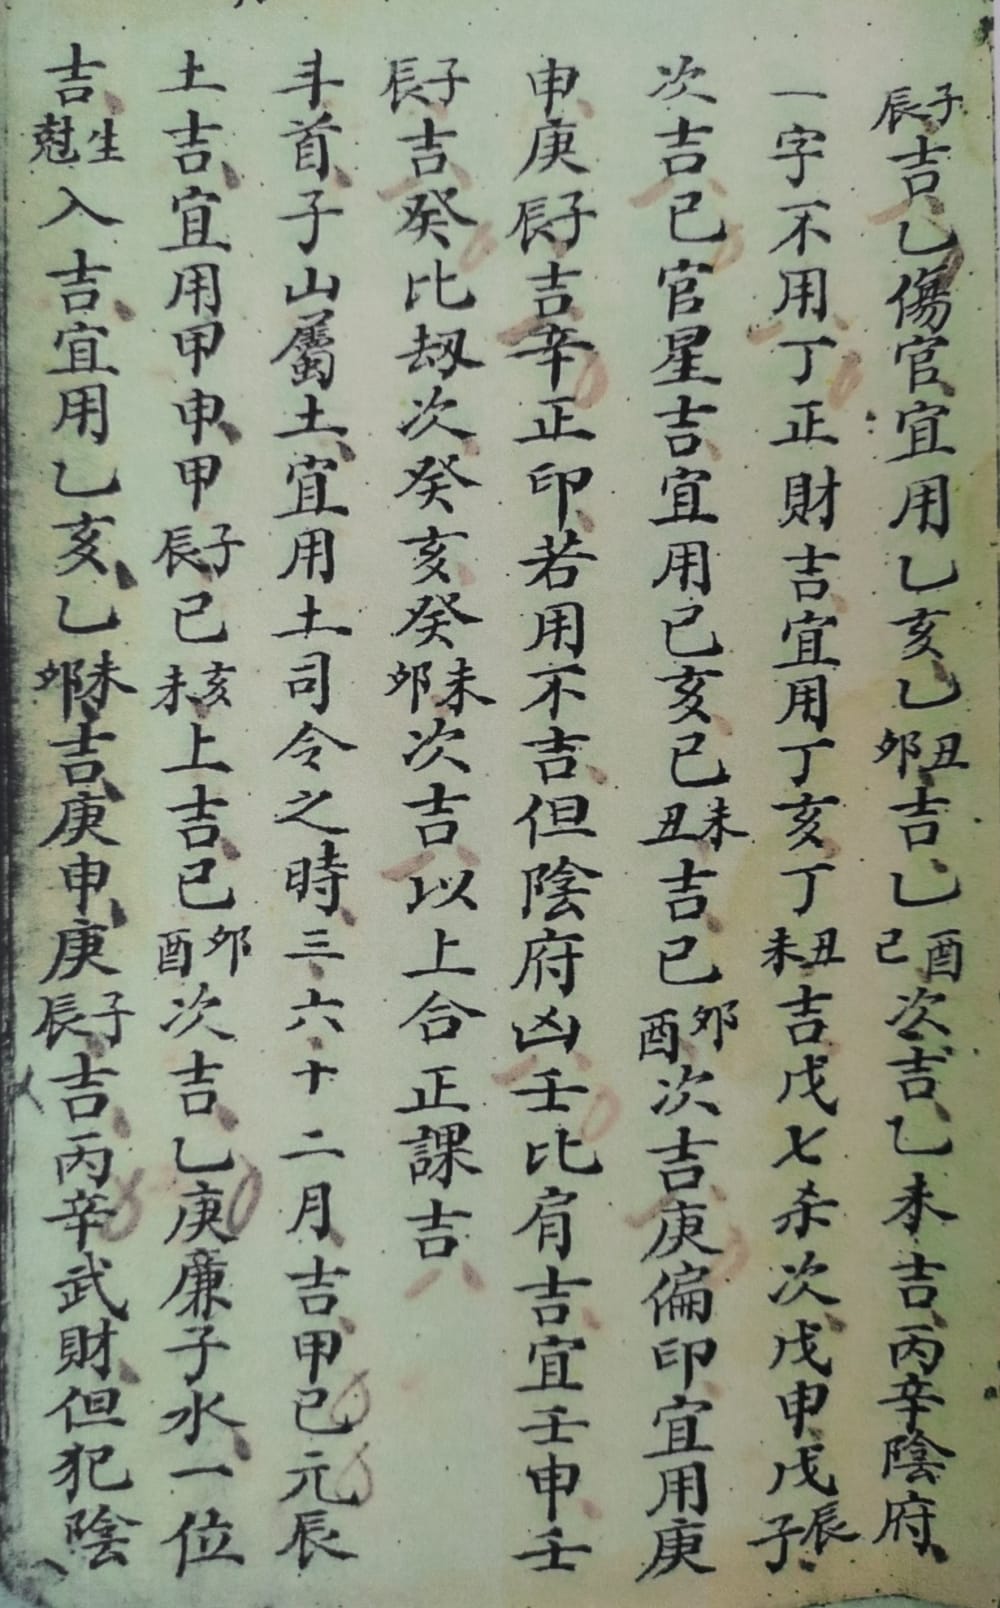 子辰吉乙傷官宜用乙亥乙丑夘吉乙酉己次吉乙未吉丙辛陰府
一字不用丁正財吉宜用丁亥丁丑未吉戊七杀次戊申戊辰子
次吉已官星吉宜用已亥已未丑吉已夘酉次吉庚偏印宜用庚
申庚子辰吉辛正印若用不吉但陰府凶壬比肩吉宜壬申壬
子辰吉癸比刼次癸亥癸未夘次吉以上合正課吉
斗首子山屬土宜用土司令之時三六十二月吉甲已元辰
土吉宜用甲申甲子辰已亥未上吉已夘酉次吉乙庚廉子水一位
吉生尅入吉宜用乙亥乙未夘吉庚申庚子辰吉丙辛武財但犯陰